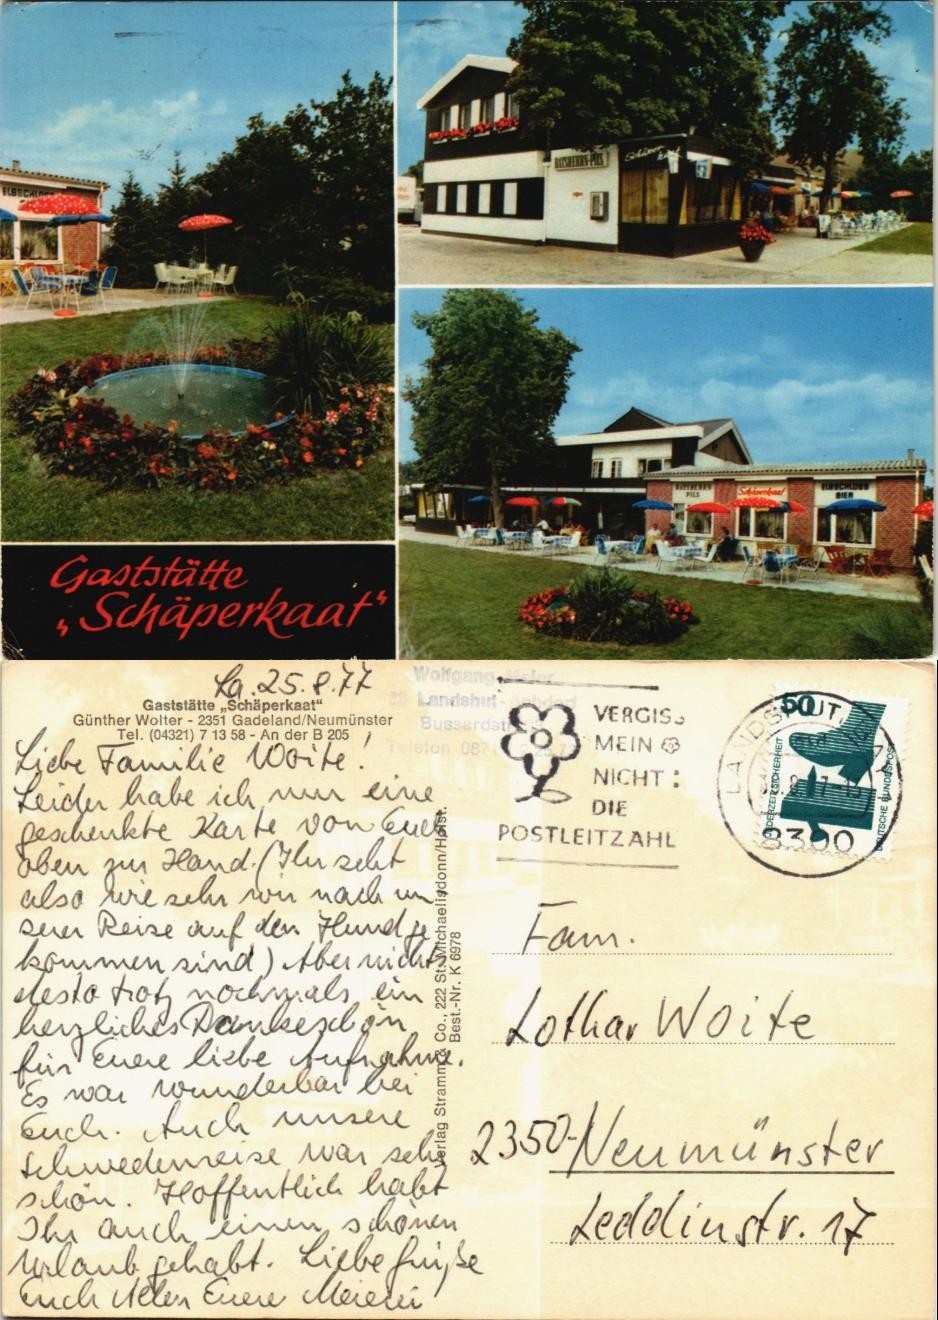 ELBSCHLOSS
RATSHERRN-PILS
Schäperkaat
RATSHERRN
PILS
Schäperkaat
ELBSCHLOSS
BIER
Gaststätte
„Schäperkaat“
La. 25.8.77
Gaststätte „Schäperkaat“
Günther Wolter - 2351 Gadeland/Neumünster
Tel. (04321) 7 13 58 - An der B 205
Liebe Familie Woite!
Leider habe ich nur eine
geschenkte Karte von Euch
oben zur Hand. (Ihr seht
also wie sehr wir nach un
serer Reise auf den Hund ge
kommen sind) Aber nichts
desto trotz nochmals ein
herzliches Dankeschön
für Euere liebe Aufnahme.
Es war wunderbar bei
Euch. Auch unsere
Schwedenreise war sehr
schön. Hoffentlich habt
Ihr auch einen schönen
Urlaub gehabt. Liebe Grüße
Euch Allen Euere Meierei
Verlag Stramm & Co., 222 St. Michaelisdonn/Holst.
Best.-Nr. K 6978
Wolfgang Meier
83 Landshut-Achdorf
Telefon
VERGISS
MEIN
NICHT:
DIE
POSTLEITZAHL
LANDSHUT
8300
50
JEDERZEIT SICHERHEIT
DEUTSCHE BUNDESPOST
Fam.
Lothar Woite
2350-Neumünster
Leddinstr. 17